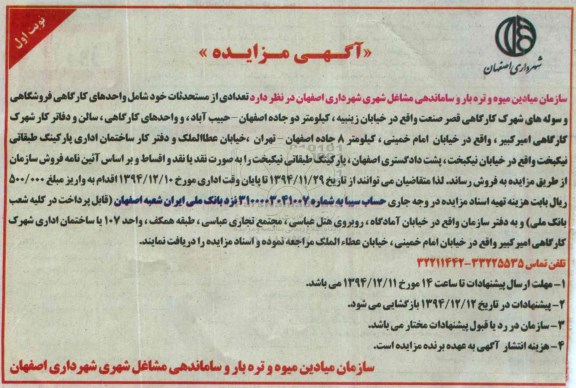 نوبت اول
شهرداری اصفهان
«آگهی مزایده»
سازمان میادین میوه و تره بار و ساماندهی مشاغل شهری شهرداری اصفهان در نظر دارد تعدادی از مستحدثات خود شامل واحدهای کارگاهی فروشگاهی
و سوله های شهرک کارگاهی قصر صنعت واقع در خیابان زینبیه ، کیلومتر دو جاده اصفهان - حبیب آباد ، و واحدهای کارگاهی ، سالن و دفاتر کار شهرک
کارگاهی امیرکبیر ، واقع در خیابان امام خمینی ، کیلومتر ۸ جاده اصفهان - تهران ،خیابان عطاالملک و دفتر کار ساختمان اداری پارکینگ طبقاتی
نیکبخت واقع در خیابان نیکبخت ، پشت دادگستری اصفهان ، پارکینگ طبقاتی نیکبخت را به صورت نقد یا نقد و اقساط و بر اساس آئین نامه فروش سازمان
از طریق مزایده به فروش رساند. لذا متقاضیان می توانند از تاریخ ۱۳۹۴/۱۱/۲۹ تا پایان وقت اداری مورخ ۱۳۹۴/۱۲/۱۰ اقدام به واریز مبلغ ۵۰۰/۰۰۰
ریال بابت هزینه تهیه اسناد مزایده در وجه جاری حساب سیبا به شماره ۳۱۰۰۰۰۳۰۴۱۰۰۷ نزد بانک ملی ایران شعبه اصفهان (قابل پرداخت در کلیه شعب
بانک ملی) و به دفتر سازمان واقع در خیابان آمادگاه ، روبروی هتل عباسی ، مجتمع تجاری عباسی ، طبقه همکف ، واحد ۱۰۷ یا ساختمان اداری شهرک
کارگاهی امیرکبیر واقع در خیابان امام خمینی ، خیابان عطاء الملک مراجعه نموده و اسناد مزایده را دریافت نمایند.
تلفن تماس ۳۳۲۲۵۵۳۵-۳۲۲۱۱۴۴۲
۱- مهلت ارسال پیشنهادات تا ساعت ۱۴ مورخ ۱۳۹۴/۱۲/۱۱ می باشد.
۲- پیشنهادات در تاریخ ۱۳۹۴/۱۲/۱۲ بازگشایی می شود.
۳- سازمان در رد یا قبول پیشنهادات مختار می باشد.
۴- هزینه انتشار آگهی به عهده برنده مزایده است.
سازمان میادین میوه و تره بار و ساماندهی مشاغل شهری شهرداری اصفهان